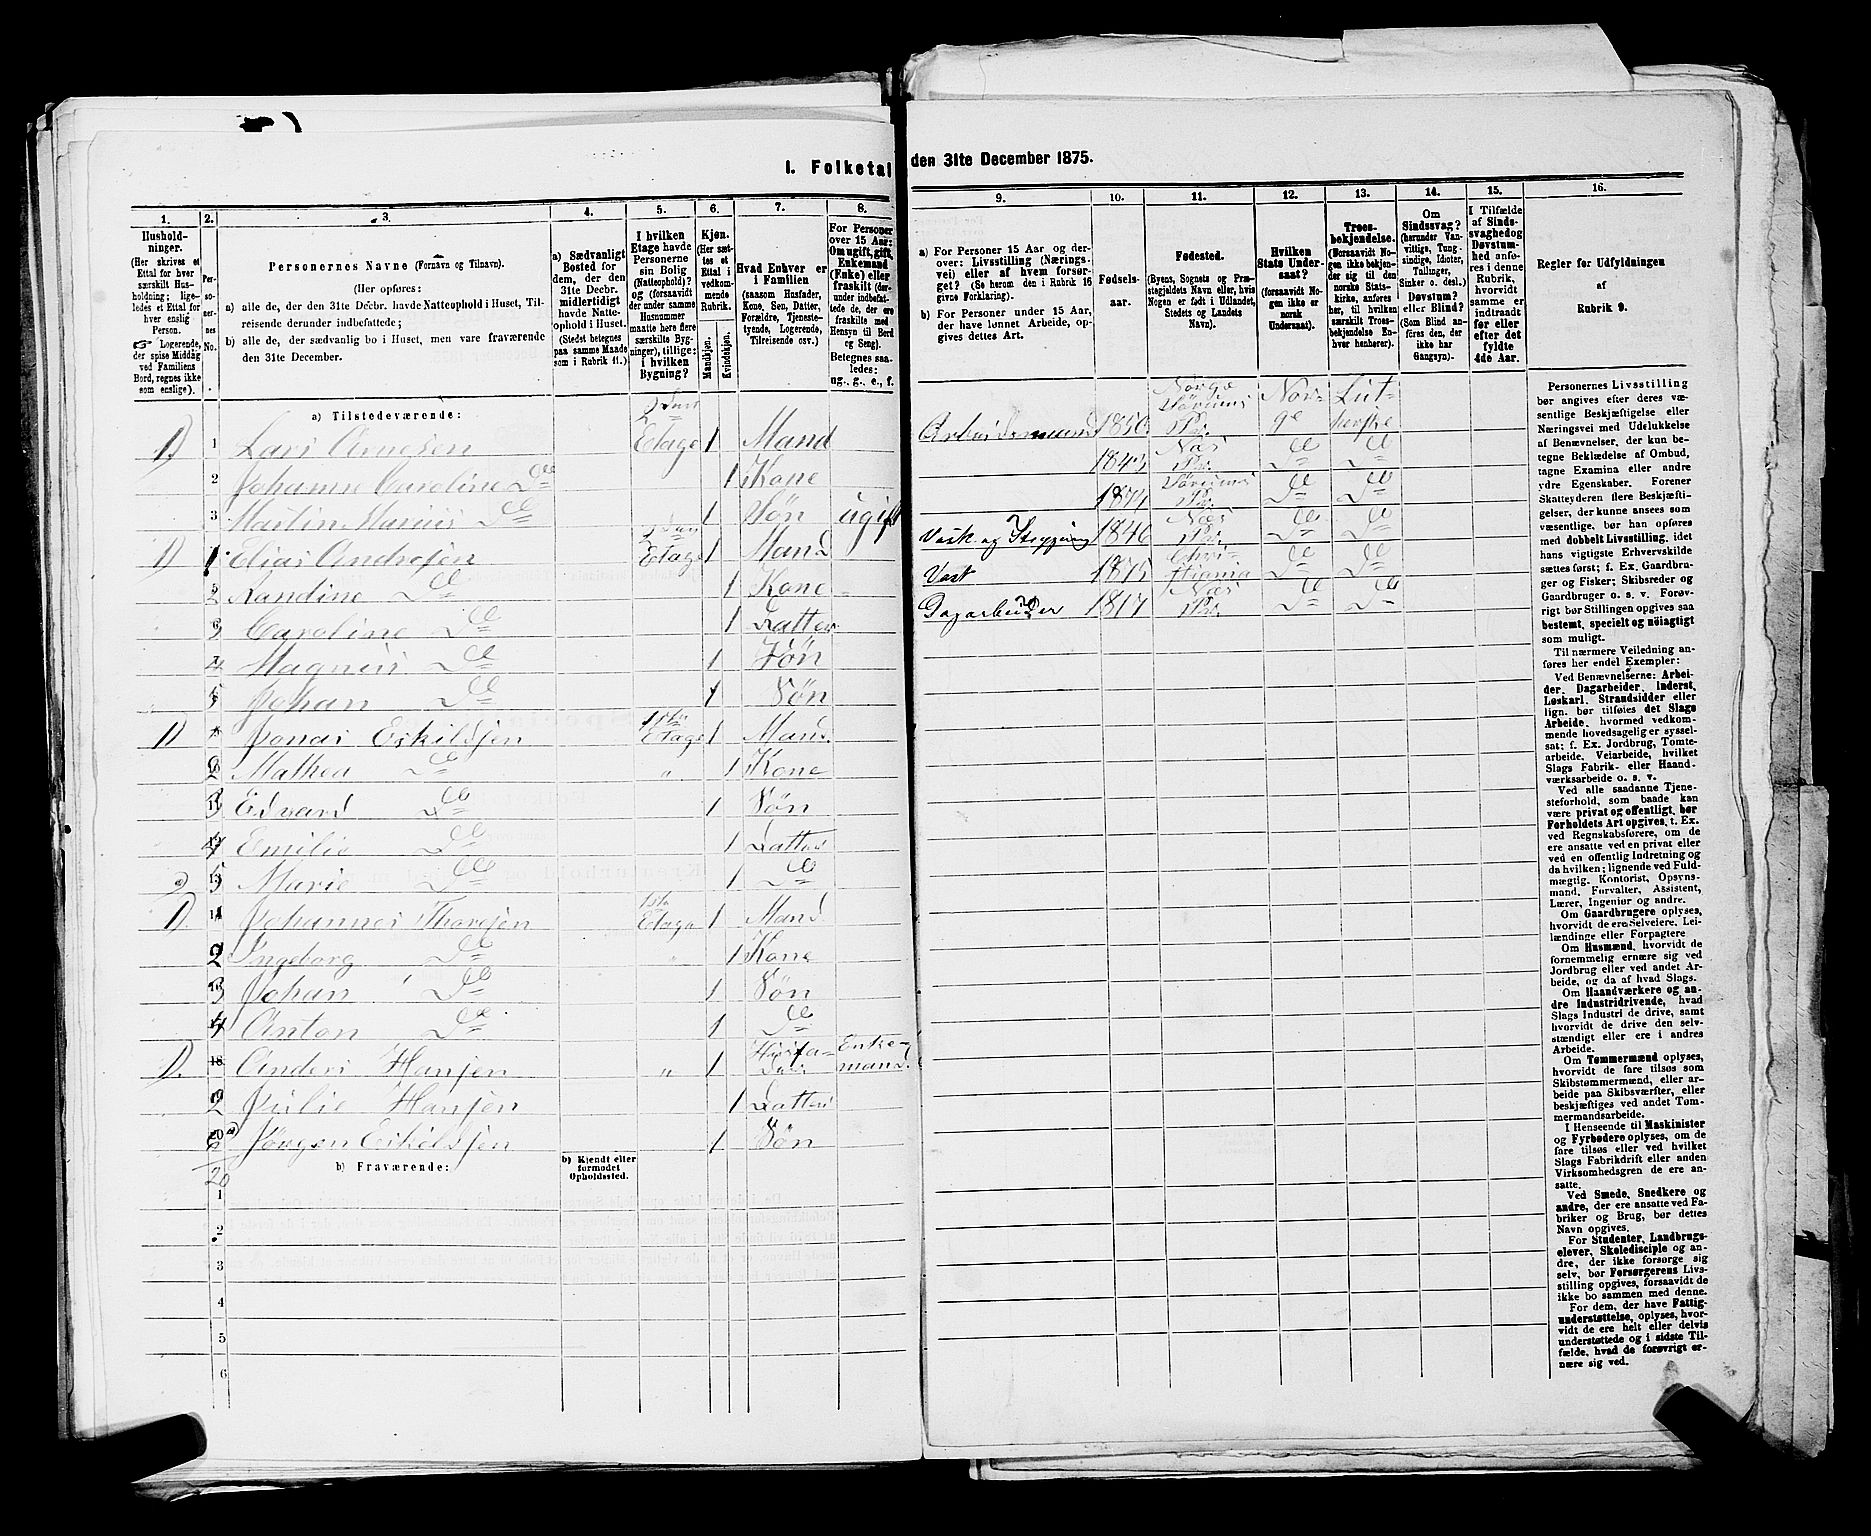 I. Folketal den 31te December 1875.
1. 2. 3. 4. 5. 6. 7. 8.
Husholdninger.
(Her skrives et
Ettal for hver
særskilt Husholdning;
ligeledes et Ettal for
hver enslig
Person.
☞ Logerende,
der spise Middag
ved Familiens
Bord, regnes ikke
som enslige).
Personernes No.
Personernes Navne (Fornavn og Tilnavn).
(Her opføres:
a) alle de, der den 31te Decbr. havde Natteophold i Huset, Tilreisende derunder indbefattede;
b) alle de, der sædvanlig bo i Huset, men vare fraværende
den 31te December.
a) Sædvanligt
Bosted for
dem, der den
31te Decbr.
midlertidigt
havde Natteophold i Huset.
(Stedet betegnes
paa samme Maade
som i Rubrik 11.)
I hvilken
Etage havde
Personerne
sin Bolig
(Natteophold)?
og (forsaavidt
der under samme
Husnummer
maatte høre flere
særskilte Bygninger), tillige:
i hvilken
Bygning?
Kjøn.
(Her sættes et
Ettal i
vedkommende
Rubrik.
Mandkjøn.
Kvindekjøn.
Hvad Enhver er
i Familien
(saasom Husfader,
Kone, Søn, Datter,
Forældre, Tjenestetyende, Logerende,
Tilreisende osv.)
For Personer
over 15 Aar:
Om ugift, gift,
Enkemand
(Enke) eller
fraskilt (derunder indbefattede de, der ere
fraskilte med
Hensyn til Bord
og Seng).
Betegnes saaledes:
ug., g., e., f.
a) Tilstedeværende:
1) 1 Lars Arnesen Etage 1 Mand
2 Johanne Caroline Do 1 Kone
3 Martin Marius Do 1 Søn ugift
1) 1 Elias Andresen Etage 1 Mand
2 Randine Do 1 Kone
3 Caroline Do 1 Datter
4 Magnus Do 1 Søn
5 Johan Do 1 Søn
1) Jonas Eskildsen 1ste Etage 1 Mand
2 Mathea Do " 1 Kone
3 Edvard Do 1 Søn
4 Emilie Do 1 Datter
2 5 Marie Do 1 Do
1) 14 Johannes Thoresen 1ste Etage 1 Mand
2 Ingeborg Do " 1 Kone
3 Johan Do 1 Søn
4 Anton Do 1 Do
1) 18 Anders Hansen " 1 Enkemand.
2 Julie Hansen 1 Datter
20 Jørgen Eskildsen 1 Søn
20
b) Fraværende:
b) Kjendt eller
formodet
Opholdssted.
1
2
3
4
5
6
9. 10. 11. 12. 13. 14. 15. 16.
a) For Personer 15 Aar og derover: Livsstilling (Næringsvei) eller af hvem forsørget? (Se herom den i Rubrik 16
givne Forklaring).
b) For Personer under 15 Aar,
der have lønnet Arbeide, opgives dettes Art.
Fødselsaar.
Fødested.
(Byens, Sognets og Præstegjeldets Navn eller, hvis
Nogen er født i Udlandet,
Stedets og Landets
Navn).
Hvilken
Stats Undersaat?
(forsaavidt Nogen ikke er
norsk
Undersaat).
Troesbekjendelse.
(Forsaavidt Nogen ikke bekjender sig til den
norske Statskirke, anføres
her, til hvilken
særskilt Troesbekjendelse Enhver henhører).
Om
Sindssvag?
(herunder Vanvittige, Tungsindige, Idioter,
Tullinger,
Sinker o. desl.)
Døvstum?
eller Blind?
(Som Blind anføres den, der
ikke har
Gangsyn).
I Tilfælde
af Sindssvaghed og
Døvstumhed anføres i denne
Rubrik,
hvorvidt
samme er
indtraadt
før eller
efter det
fyldte
4de Aar.
Regler for Udfyldningen
af
Rubrik 9.
Norge Norge Lutherske
Arbeidsmand 1850 Sørums Pr.
1843 Næs Pr. Do Do
1874 Sørums Pr. Do Do
Vask og Strygning 1846 Næs Pr. Do Do
Vask 1875 Christiania Do Do
Dagarbeider 1817 Næs Pr. Do Do
Personernes Livsstilling
bør angives efter deres væsentlige Beskjæftigelse eller
Næringsvei med Udelukkelse
af Benævnelser, der kun betegne Beklædelse af Ombud,
tagne Examina eller andre
ydre Egenskaber. Forener
Skatteyderen flere Beskjæftigelser, der kunne ansees som
væsentlige, bør han opføres
med dobbelt Livsstilling, idet
hans vigtigste Erhvervskilde
sættes først; f. Ex. Gaardbruger og Fisker; Skibsreder og
Gaardbruger o. s. v. Forøvrigt bør Stillingen opgives saa
bestemt, specielt og nöiagtigt
som muligt.
Til nærmere Veiledning anføres her endel Exempler:
Ved Benævnelserne: Arbeider, Dagarbeider, Inderst,
Løskarl, Strandsidder eller
lign. bør tilføies det Slags
Arbeide, hvormed vedkommende hovedsagelig er sysselsat; f. Ex. Jordbrug, Tomtearbeide, Veiarbeide, hvilket
Slags Fabrik- eller Haandværksarbeide o. s. v.
Ved alle saadanne Tjenesteforhold, som baade kan
være privat og offentligt, bør
Forholdets Art opgives, t. Ex.
ved Regnskabsførere, om de
ere ansatte ved en privat eller
ved en offentlig Indretning og
da hvilken; lignende ved Fuldmægtig, Kontorist, Opsynsmand, Forvalter, Assistent,
Lærer, Ingeniør og andre.
Om Gaardbrugere oplyses,
hvorvidt de ere Selveiere, Leilændinge eller Forpagtere
Om Husmænd, hvorvidt de
fornemmelig ernære sig ved
Jordbrug eller ved andet Arbeide, og da af hvad Slags.
Om Haandværkere og andre Industridrivende, hvad
Slags Industri de drive, samt
hvorvidt de drive den selvstændigt eller ere i andres
Arbeide.
Om Tømmermænd oplyses,
hvorvidt de fare tilsøs som
Skibstømmermænd, eller arbeide paa Skibsværfter, eller
beskjæftiges ved andet Tømmermandsarbeide.
I Henseende til Maskinister
og Fyrbødere oplyses, om de
fare tilsøs eller ved hvilket
Slags Fabrikdrift eller anden
Virksomhedsgren de ere ansatte.
Ved Smede, Snedkere og
andre, der ere ansatte ved Fabriker og Brug, bør dettes
Navn opgives.
For Studenter, Landbrugselever, Skoledisciple og andre, der ikke forsørge sig
selv, bør Forsørgerens Livsstilling opgives, forsaavidt de
ikke bo sammen med denne.
For dem, der have Fattigunderstøttelse, oplyses, hvorvidt de ere helt eller delvis
understøttede og i sidste Tilfælde, hvad de forøvrigt ernære sig ved.